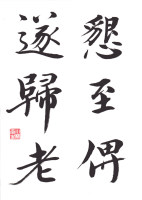 懇至俾
遂歸老